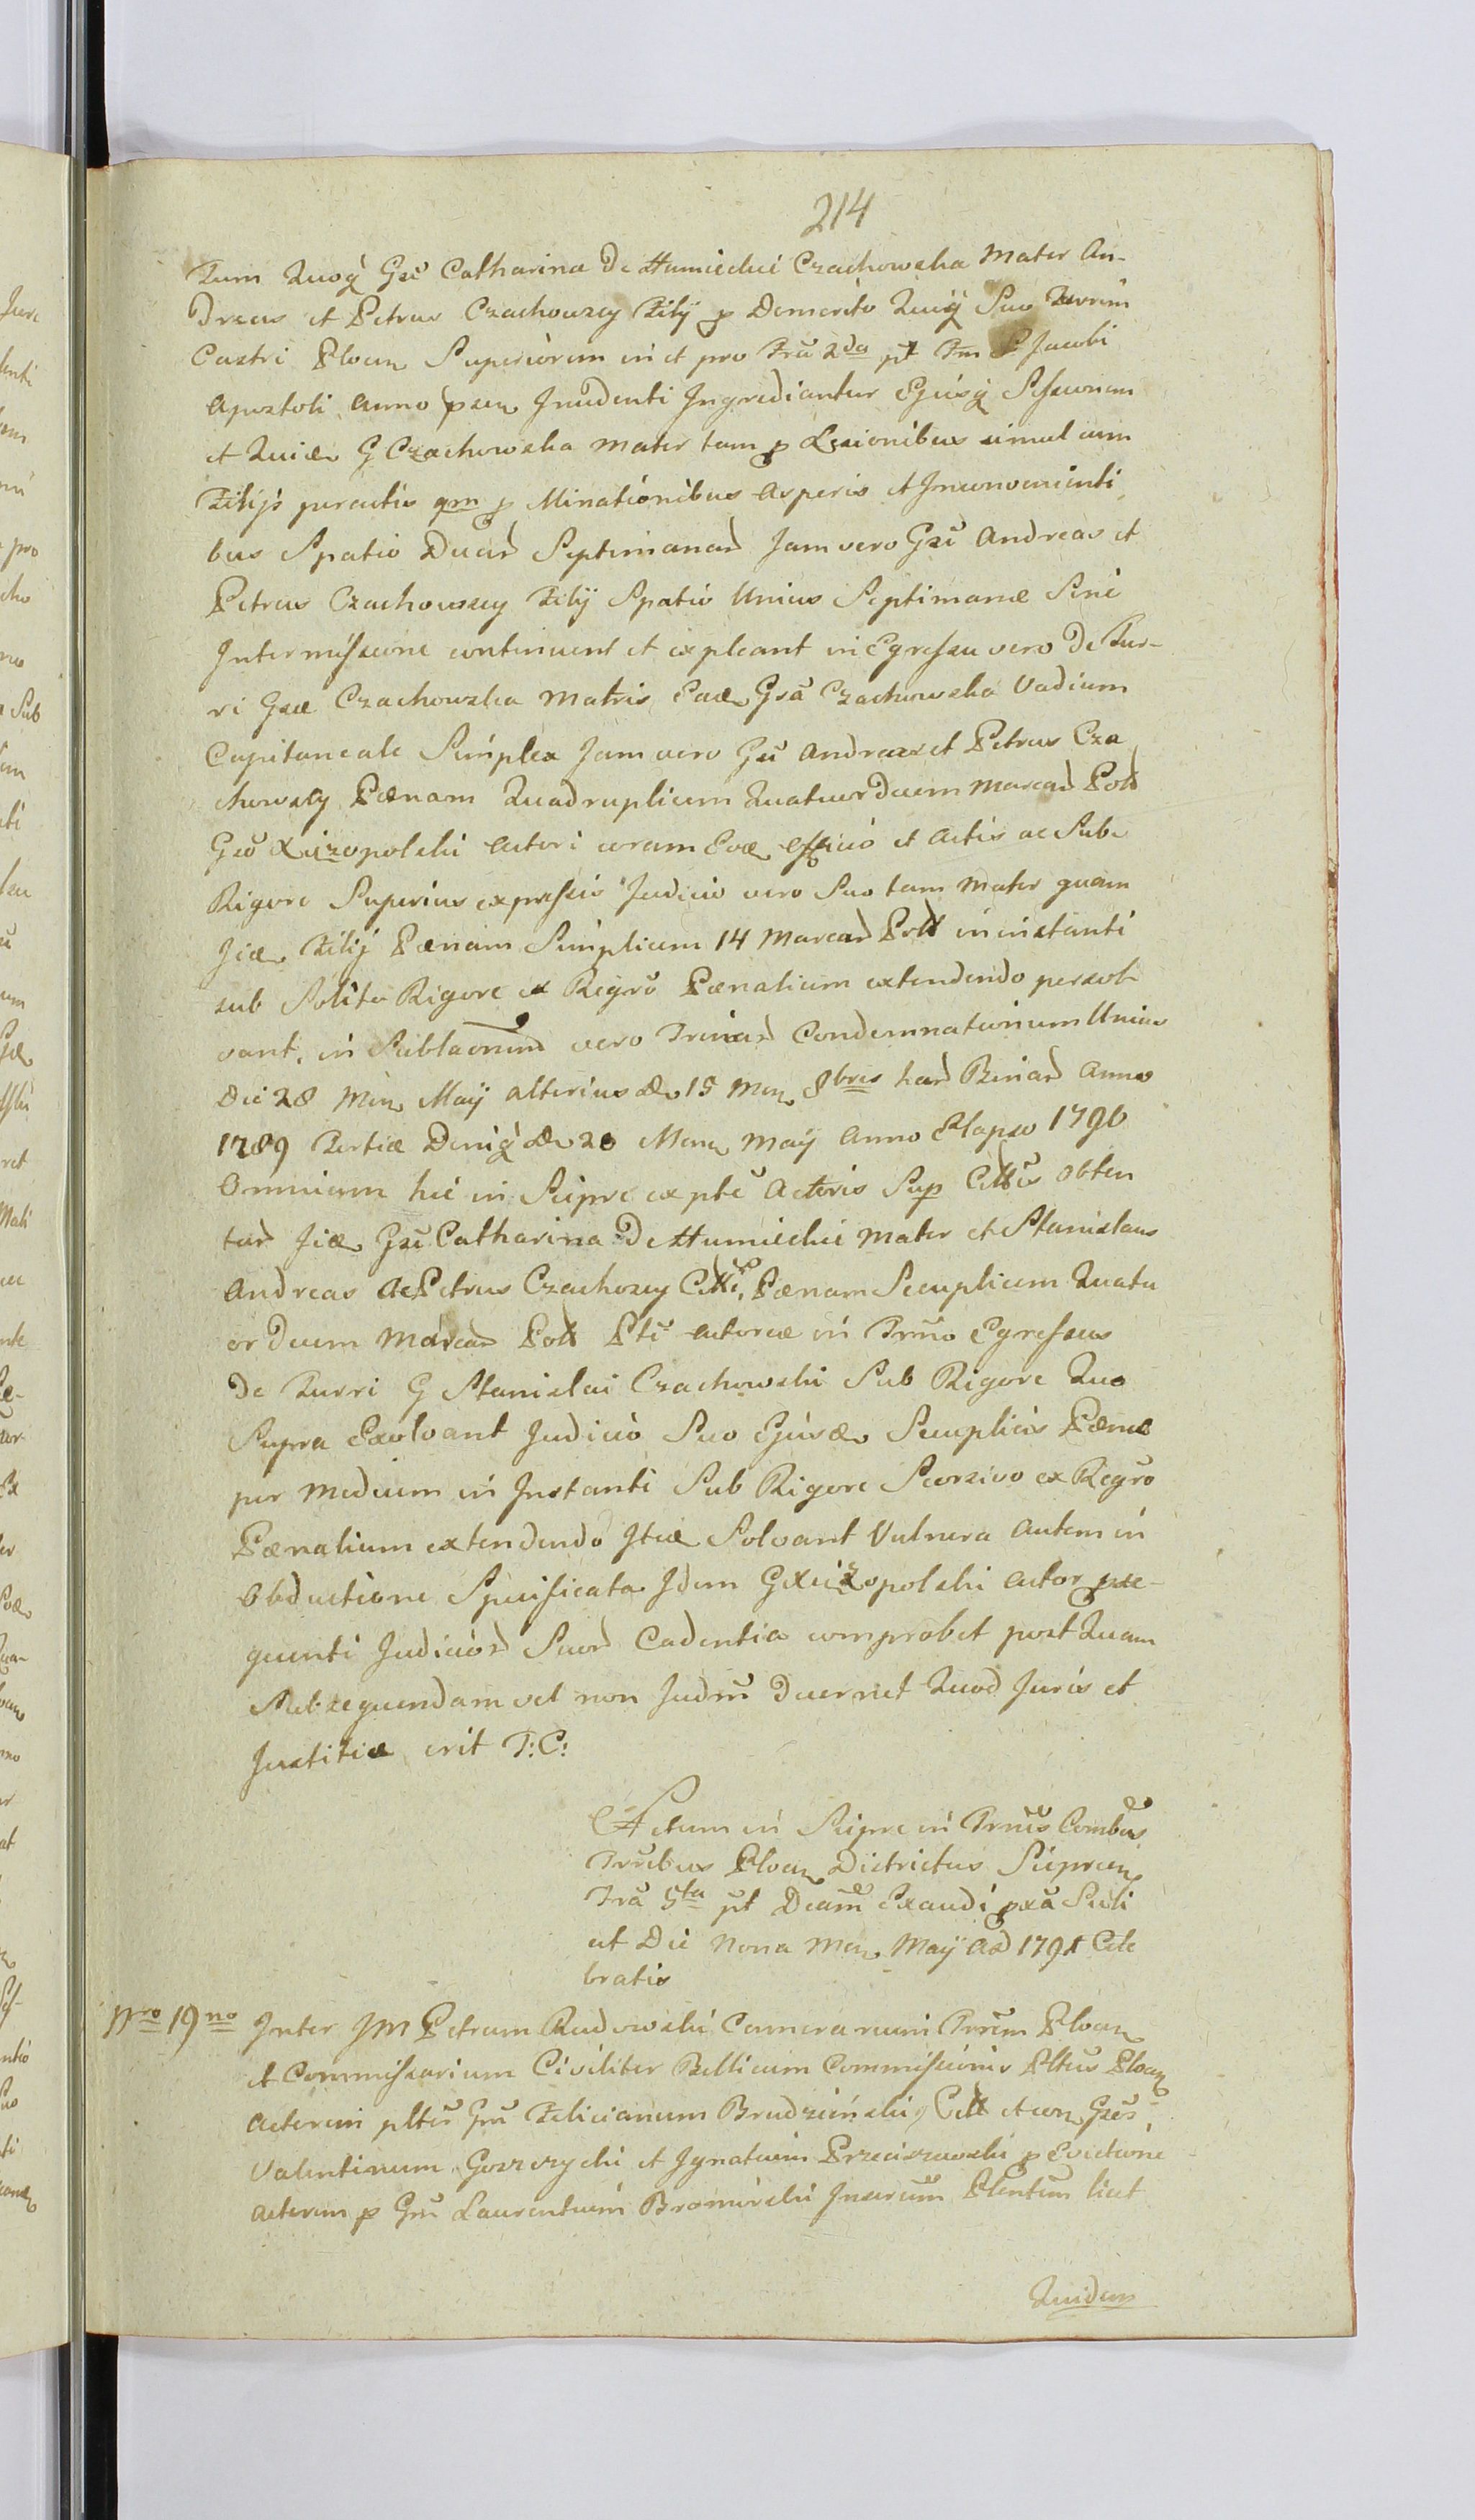 214
Tum Quoq́ Gsē Catharina De Humieckie Czachowska Mater An-
dreas et Petrus Czachowscy Filij p Demerito Quiq́ Suo Turrim
Castri Plocen Superiorem in et pro Fria 2da pt Fm S Jacobi
Apostoli Anno psen Incidenti Ingrediantur Ejusq́ Sessionem
et Quidem G Czachowska Mater tam p Lesionibus simul cum
Filijs peractis qm p Minationibus Asperis et Inconvenienti
bus Spatio Duar Septimanar Jam vero Gsi Andreas et
Petrus Czachowscy Filij Spatio Unius Septimanæ Sine
Intermissione continuent et expleant in Egressu vero De Tur-
ri Gsæ Czachowska Matris Eadem Gsa Czachowska Vadium
Capitaneale Simplex Jam vero Gsi Andreas et Petrus Cza
chowscy Pænam Quadruplicem Quatuordecim Marcar Poll
Gso Xięzopolski Actori coram Eod Officio et Actis ac Sub
Rigore Superius expressis Judicio vero Suo tam Mater quam
Jid Filij Pænam Simplicem 14 Marcar Poll in instanti
sub Solito Rigore ex Regro Pænalium extendendo persol
vant, in Sublaonem vero Trinar Condemnationum Unius
Die 28 Men Maij alterius De 15 Men 8bris har Binar Anno
1789 Tertiæ Deniq́ De 20 Men Maij Anno Elapso 1790
Omnium hic in Sieprc ex pte Actoris Sup Cittis obten
tar Jid Gsi Catharina De Humieckie Mater et Stanislaus
Andreas Ac Petrus Czachoscy Citti, Pænam Sexuplicem Quatu
or Decim Marcar Poll Pti Actoreæ in Trmo Egressus
De Turri G Stanislai Czachowski Sub Rigore Quo
Supra Exolvant Judicio Suo Ejusd Sexuplicis Pænæ
per Medium in Instanti Sub Rigore Seorsivo ex Regro
Pænalium extendendo Itid Solvant Vulnera Autem in
Obductione Specificata Idem G Xięzopolski Actor
quenti Judicior Suor Cadentia comprobet post Quam
Subsequendam vel non Judm Decernet Quod Juris et
Justitiæ erit T: C:
Actum in Sieprc in Trmis Combus
Trrlibus Plocen Districtus Sieprcen
Fria 5ta pt Dcam Exaudi pxa Scili
cet Die Nona Men Maij AD 1791 Cele
bratis
Nro 19no Inter JM Petrum Rudowski Camerarium Trrem Plocen
et Commissarium Civiliter Bellicum Commissionis Pltus Plocen
Actorem pltus Gm Felicianum Brudzinski, Citt et con Gsos
Valentinum Gorczycki et Ignatium Przeciszewski p Evictione
Actorem p Gm Laurentium Bromirski Inserum Pltentum licet
Quidem